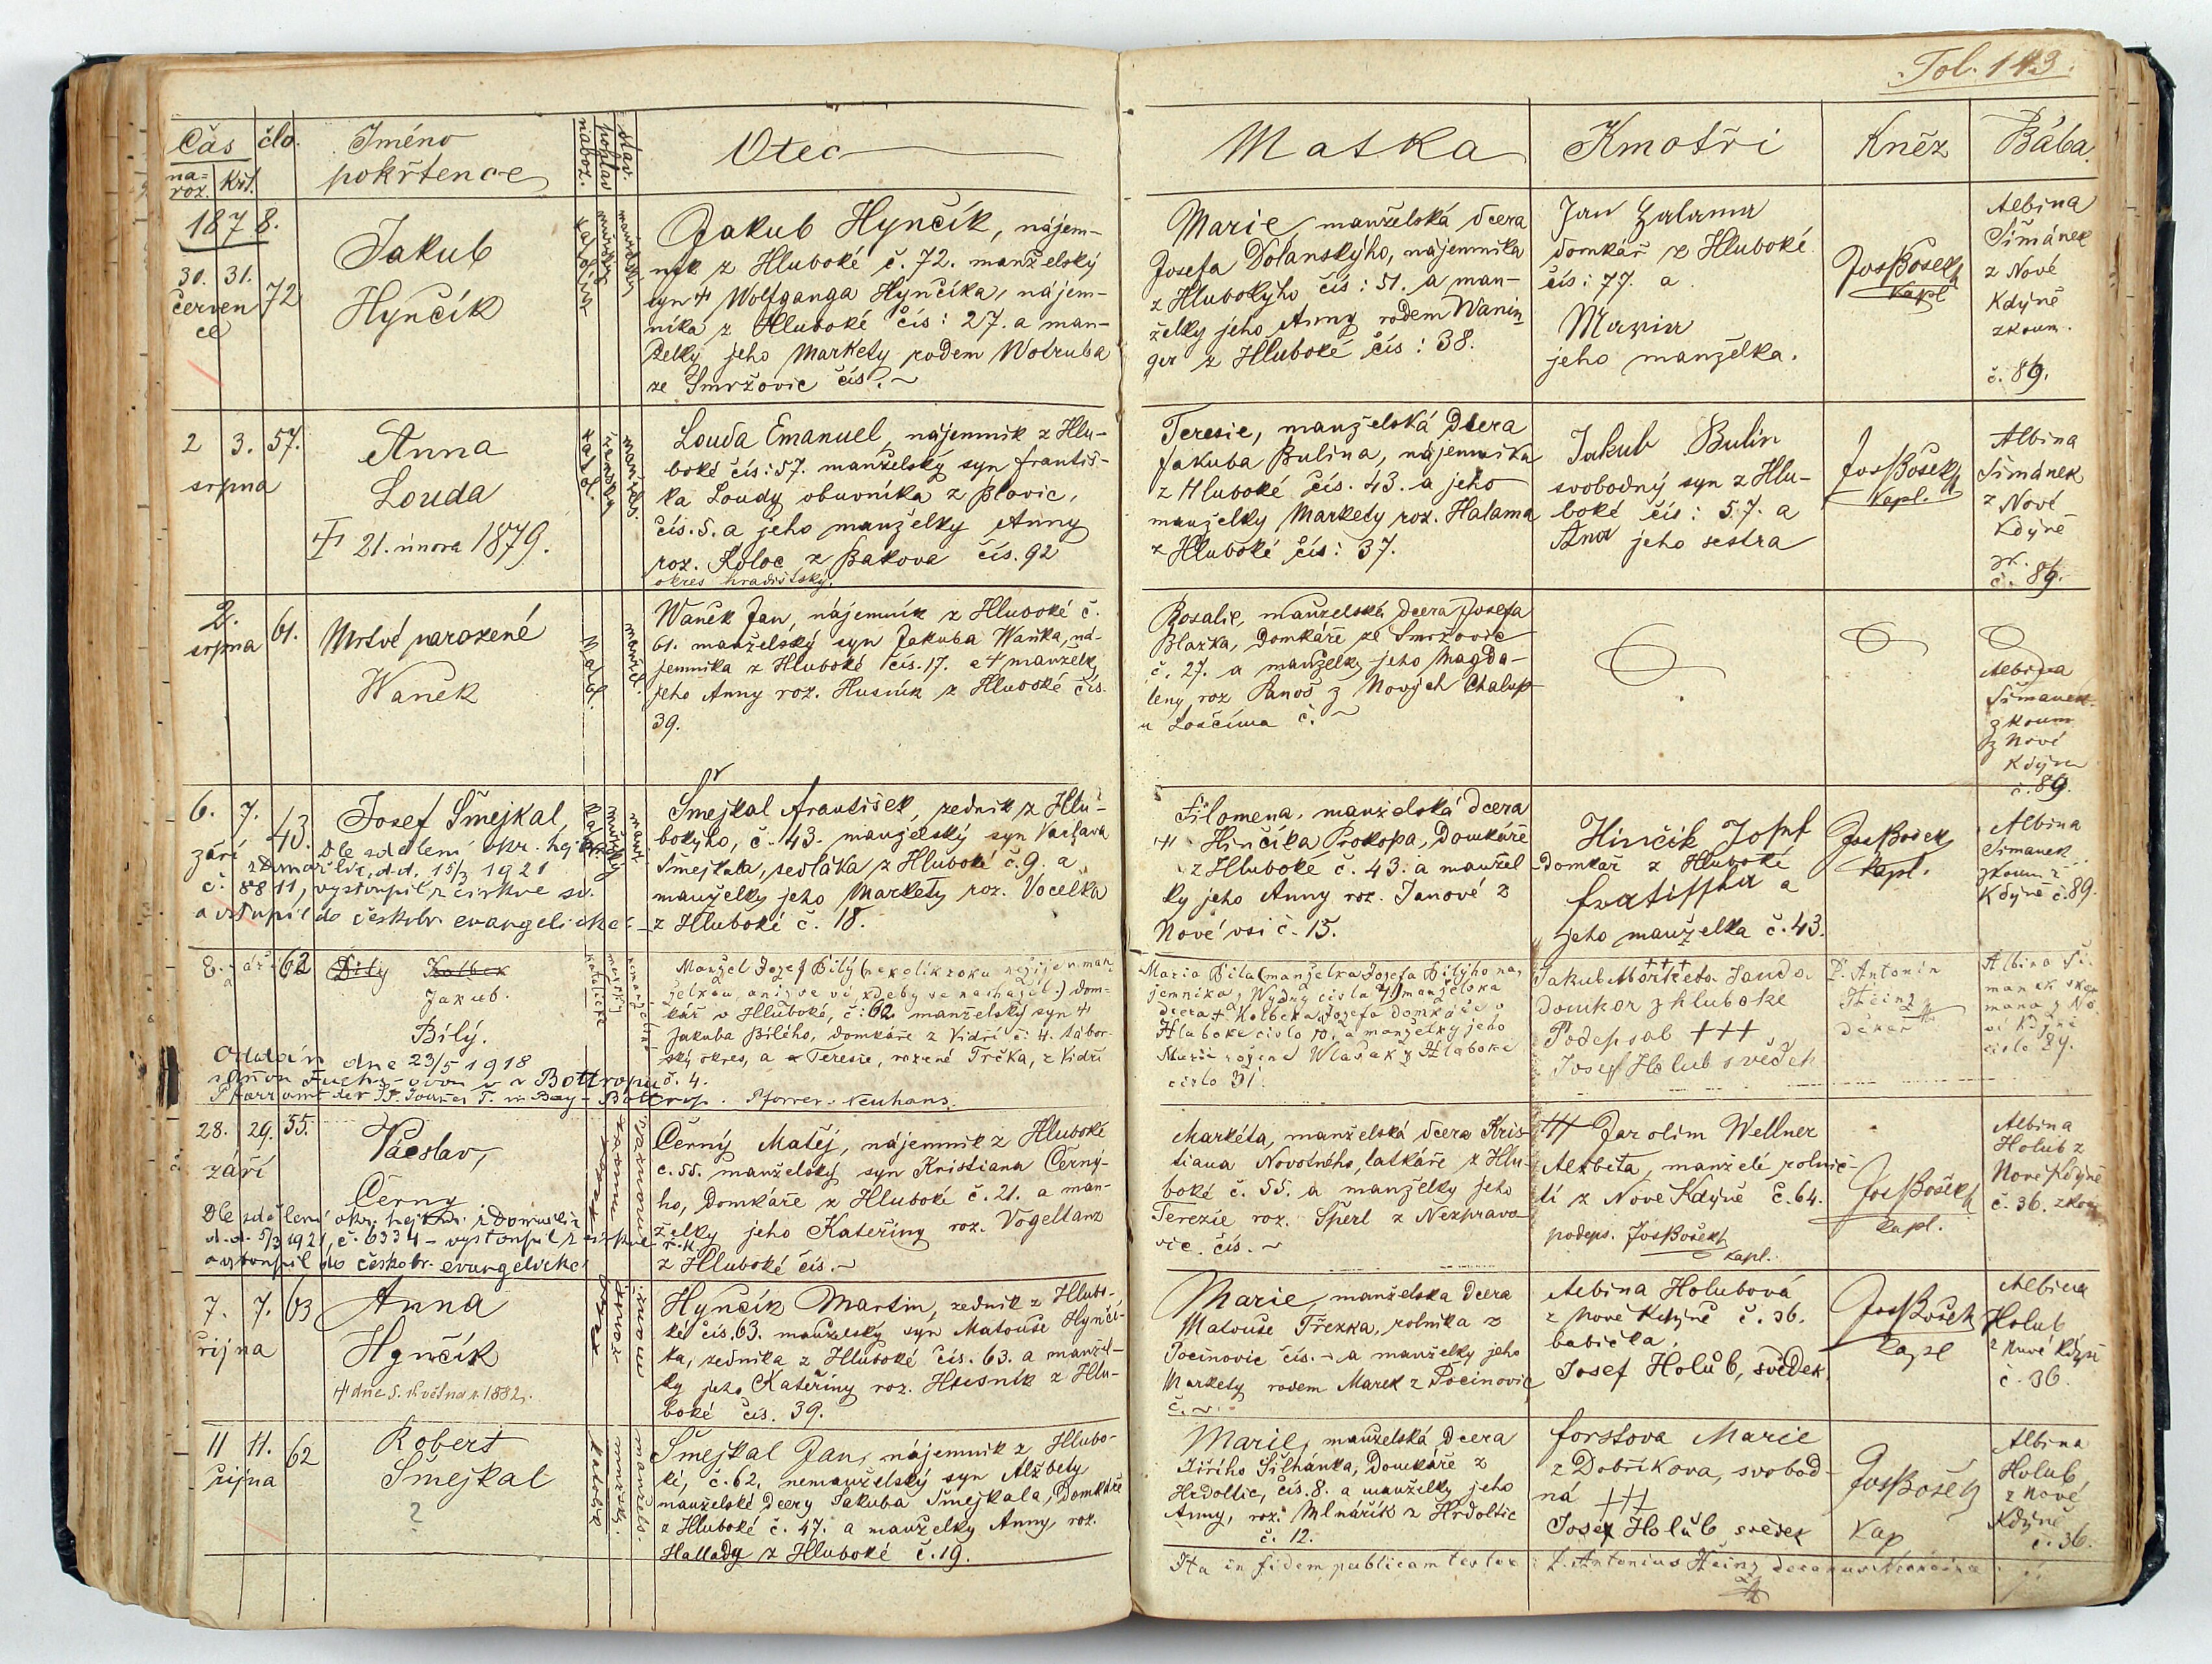 Fol. 143.
Čas
čís.
Jméno
pokřtence
Otec
Matka
Kmotři
Kněz
Bába
na-
roz.
Křt.
nábož.
pohlav
stav.
1878.
30. 31.
červen
ce
72
Jakub
Hynčík
Jakub Hynčík, nájem-
ník z Hluboké č. 72. manželský
syn † Wolfganga Hynčíka, nájem-
níka z Hluboké čís: 27. a man-
želky jeho Markety rodem Wotruba
ze Smržovic čís. ~
Marie, manželská dcera
Josefa Dolanskýho, nájemníka
z Hlubokýho čís: 51. a man-
želky jeho Anny rodem Wanin-
ger z Hluboké čís: 38.
Jan Halama
domkář z Hluboké
čís: 77. a
Maria
jeho manželka.
Jos Bošek
Kapl
Albina
Šimánek
z Nové
Kdýně
zkoum.
č. 89.
2 3. 57.
srpna
Anna
Louda
† 21. února 1879.
Louda Emanuel, nájemník z Hlu-
boké čís: 57. manželský syn Františ-
ka Loudy obuvníka z Blovic,
čís. 5. a jeho manželky Anny
roz. Koloc z Bakova čís. 92
okres hradištský.
Teresie, manželská dcera
Jakuba Bulina, nájemníka
z Hluboké čís. 43. a jeho
manželky Markety roz. Halama
z Hluboké čís: 37.
Jakub Bulin
svobodný syn z Hlu-
boké čís: 57. a
Anna jeho sestra
Jos Bošek
Kapl.
Albina
Šimánek
z Nové
Kdýně
č. 89.
2.
srpna
61.
Mrtvé narozené
Waněk
Waněk Jan, nájemník z Hluboké č.
61. manželský syn Jakuba Waňka, ná-
jemníka z Hluboké čís. 17. a † manželky
jeho Anny roz. Husník z Hluboké čís.
39.
Rosalie, manželská dcera Josefa
Blažka, domkáře ze Smržovic
č. 27. a manželky jeho Magda-
leny roz Panoš z Nových Chalup
u Loučima č. ~
Albina
Šimanek
zkoum
z Nové
Kdýně
č. 89.
6. 7. 43.
září
Josef Šmejkal,
Dle sdělení okr. hejt.
z Domažlic, d.d. 15/3 1921
č. 8811, vystoupil z církve sv.
a vstupil do českobr. evangelické
Šmejkal František, zedník z Hlu-
bokýho, č. 43. manželský syn Vaclava
Šmejkala, sedláka z Hluboké č. 9. a
manželky jeho Markety roz. Vocelka
z Hluboké č. 18.
Filomena, manželská dcera
† Hinčíka Prokopa, Domkáře
z Hluboké č. 43. a manžel
ky jeho Anny roz. Janové z
Nové vsi č. 15.
Hinčik Josef
Domkař z Hluboké
a
jeho manželka č. 43.
Jos Bošek
Kapl.
Albina
Simanek
zkoum z
Kdýně č. 89.
8. září 62
Bílý Kolbek
Jakub.
Bílý.
Oddán dne 23/5 1918
v Bottropu
Pfarramt der St. in Bottrop. Pfarrer: Neuhans.
Manžel Jozef Bílý (nekolik roku nežije v man
želkou, ani se ví kdeby se nacházel.) dom-
kář v Hluboké, č: 62 manželský syn †
Jakuba Bílého, domkáře z Vidří č: 4. tábor-
ský okres, a Teresie, rozené Trčka, z Vidří
č. 4.
Maria Bila (manželka Josefa Bilýho na
jemnika, Wydny cisla 4) manželska
dcera † Kolbeka Jozefa domkaře v
Hluboke cislo 10, a manželky jeho
Marie rozene Wlasak z Hluboke
cislo 31.
Jakub Markéta Janda
domkar z hluboke
Podepsal +++
Josef Holub svědek
P. Antonin
Heinz
děkan
Albina Ši-
manek zkou
mana z No
vé Kdyně
cislo 89.
28. 29. 55.
září
Václav,
Černý
Dle sdělení okr. hejtm. z Domažlic
d.d. 5/3 1921, č. 6334 - vystoupil z církve ř.k.
a vstoupil do českobr. evangelické
Černý Matěj, nájemník z Hluboké
č. 55. manželský syn Kristiana Černý-
ho, Domkáře z Hluboké č. 21. a man-
želky jeho Kateřiny roz. Vogeltanz
z Hluboké čís. ~
Markéta, manželská dcera Kris-
tiana Novotného, latkáře z Hlu-
boké č. 55. a manželky jeho
Terezie roz. Šperl z Nezpravo-
vic. čís. ~
+++ Jarolim Wellner
Alžběta, manželé rolnič-
tí z Nové Kdýně č. 64.
podeps. Jos Bošek
kapl.
Jos Bošek
kapl.
Albina
Holub z
Nové Kdýně
č. 36. zkou
7. 7. 63
října
Anna
Hynčík
† dne 5. května r. 1882.
Hynčík Martin, zedník z Hlubo-
ké čís. 63. manželský syn Matouše Hynčí-
ka, zedníka z Hluboké čís. 63. a manžel-
ky jeho Kateřiny roz. Husník z Hlu-
boké čís. 39.
Marie, manželska dcera
Matouše Třezka, rolníka z
Pocinovic čís. ~ a manželky jeho
Markety rodem Marek z Pocinovic
č. ~
Albina Holubová
z Nové Kdýně č. 36.
babička,
Josef Holub, svědek
Jos Bošek
Kapl
Albina
Holub
z Nové Kdýně
č. 36.
11 11. 62
října
Robert
Šmejkal
?
Šmejkal Jan, nájemník z Hlubo-
ké, č. 62, nemanželský syn Alžběty
manželské dcery Jakuba Šmejkala, Domkáře
z Hluboké č. 47. a manželky Anny, roz.
Hallady z Hluboké č. 19.
Marie, manželská dcera
Jiřího Silhánka, Domkáře z
Hrdoltic, čís. 8. a manželky jeho
Anny, roz. Mlnářík z Hrdoltic
č. 12.
Forstova Marie
z Dobříkova, svobod-
ná +++
Josef Holub svědek
Jos Bošek
Kap
Albina
Holub,
z Nové
Kdýně
č. 36.
Ita in fidem publicam testor: P. Antonius Heinz decanus